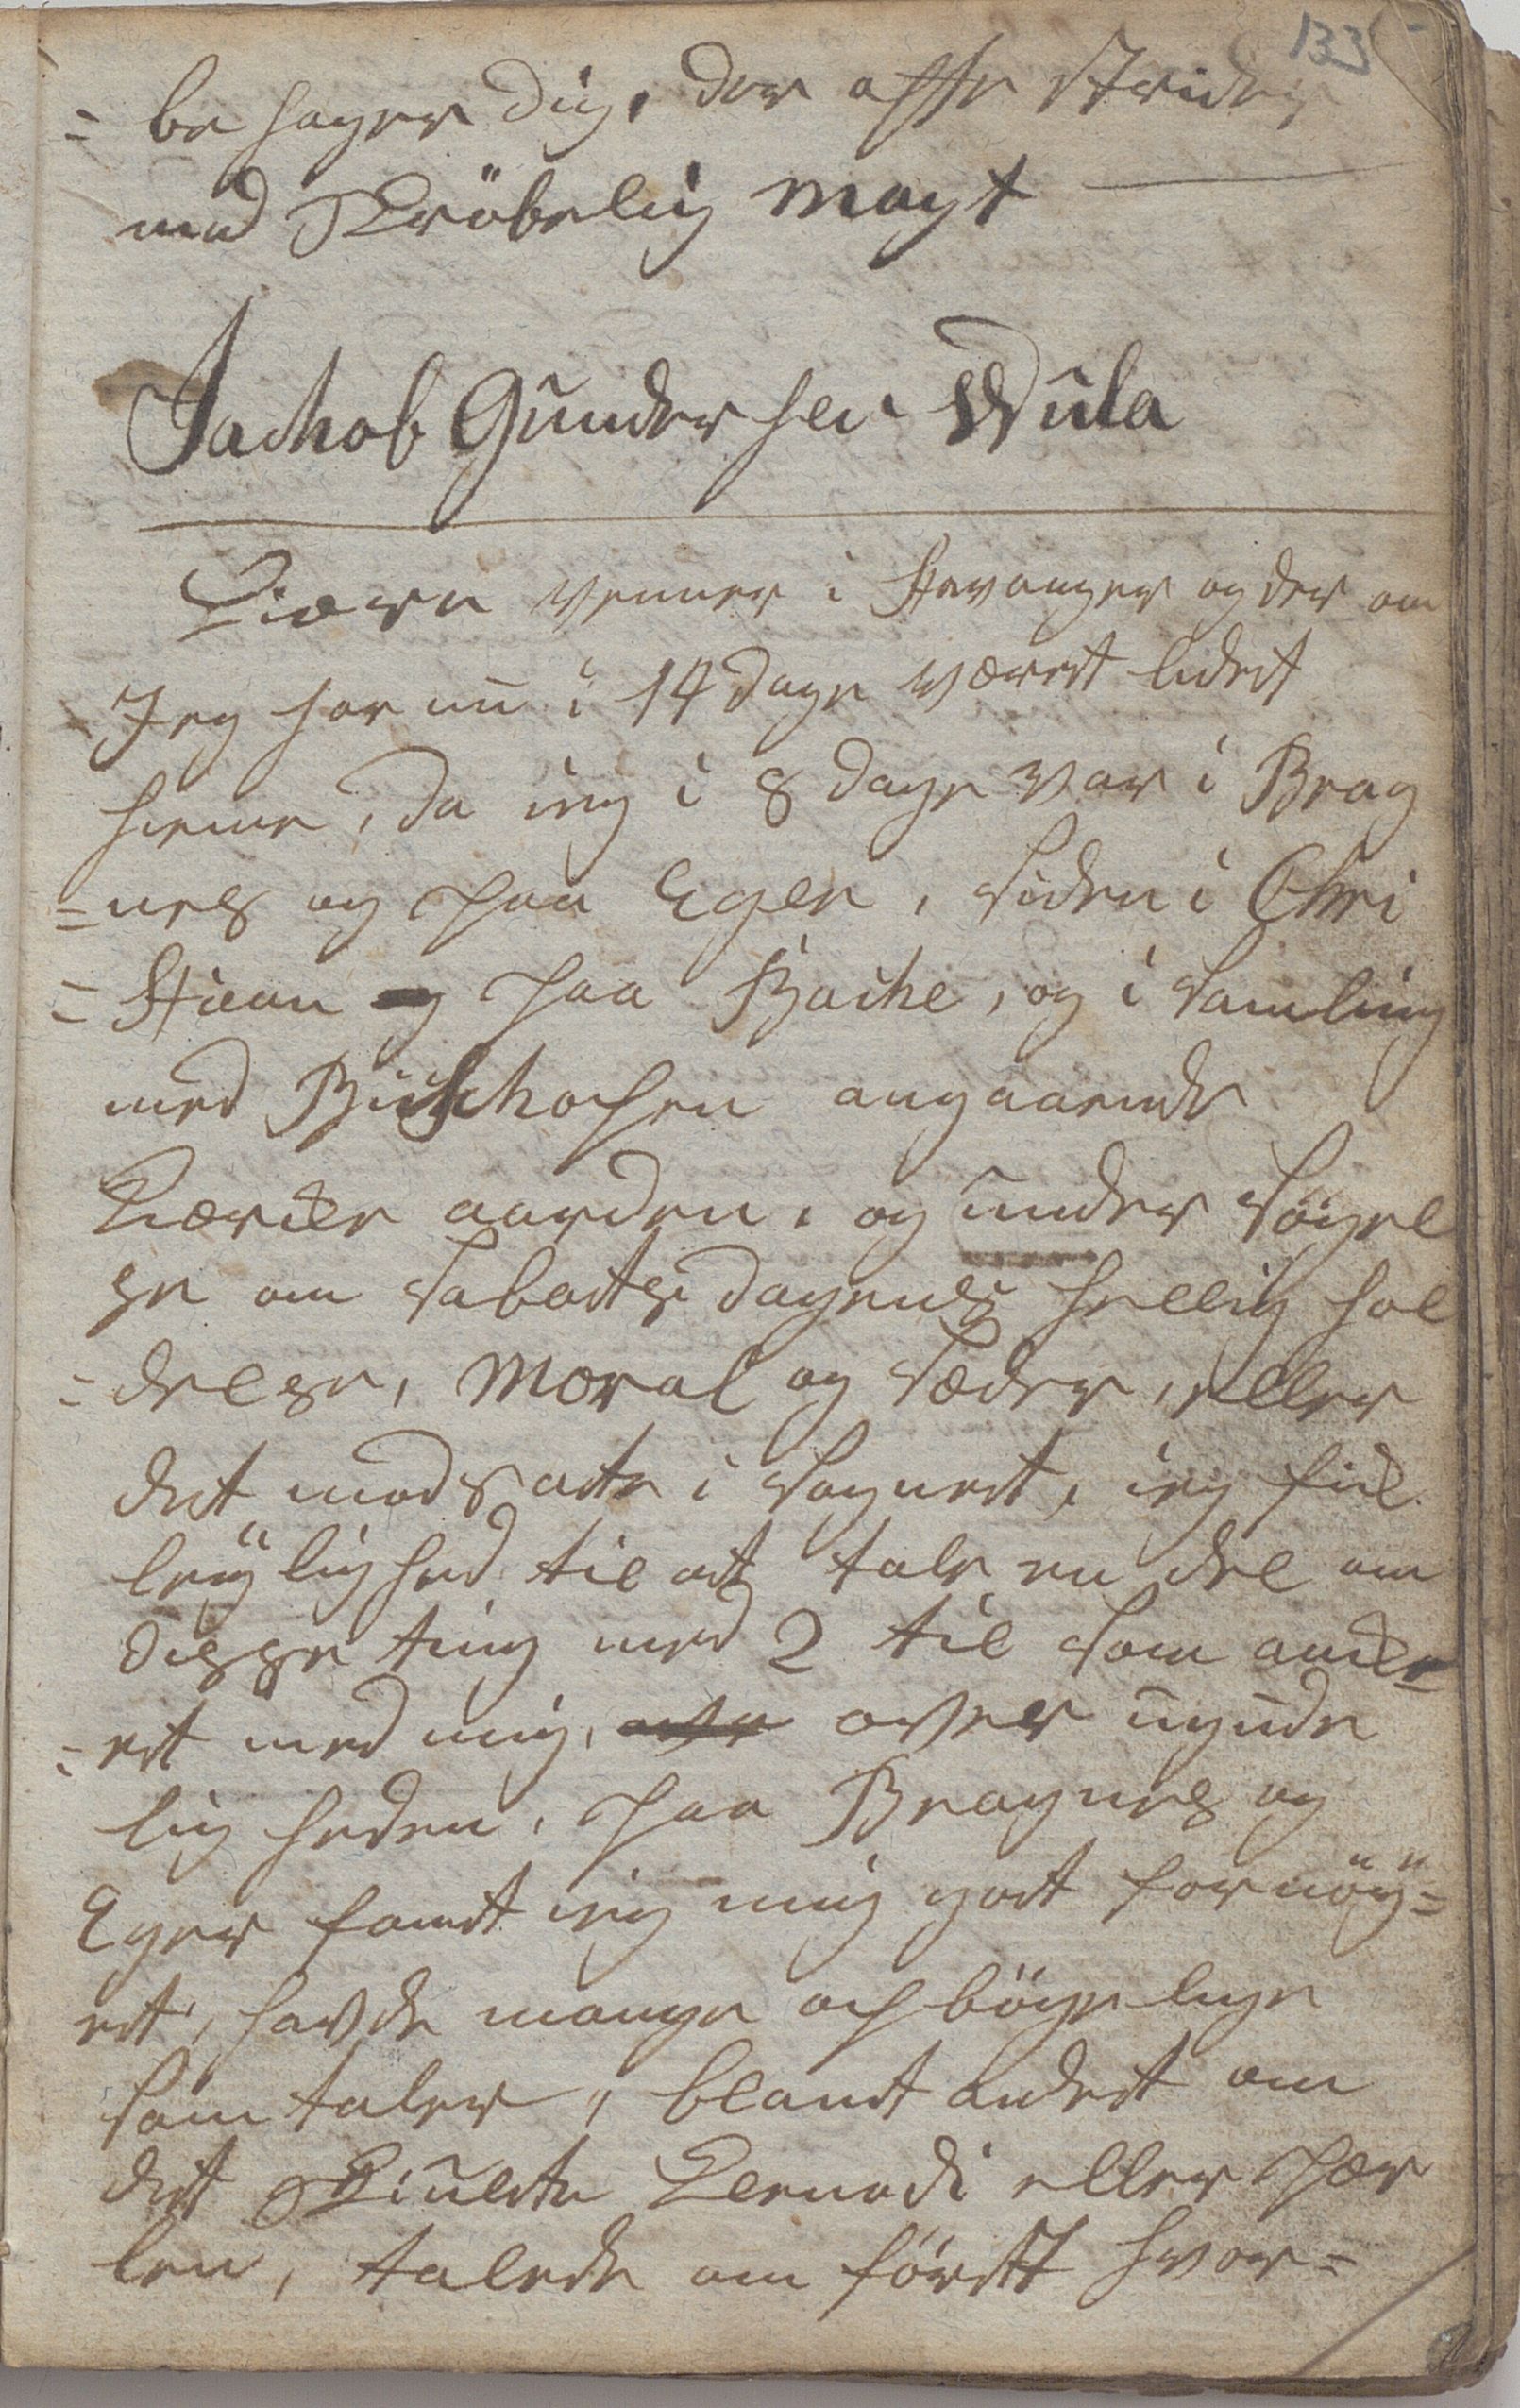 133
= be hager dig, der ofte strider
med Skröbelig magt
Jachob Gundersen Wula
Kiære venner i Stavanger og der om
Jeg har nu i 14 dage været lidet
hieme, da ieg i 8 dage var i Brag
= nes og paa Eger, siden i Chri
= Stiaan og paa Bache, og i samling
med Bischopen angaaende
Lærder aarden, og under Søgel
se om Sabatsdagenes hellig hol
= delse, Moral og Sæder, eller
det modsatte i Sognet, ieg fik
leylighed til at tale en del om
disse ting med 2 til som ander
= et med mig, over ugude
lig heden, paa Bragnes og
Eger fandt ieg mig got fornöy=
et, havde mange opbögelige
Samtaler, blandt andet om
det Skiulte Klenodi eller Per
len, talede om först hvor=